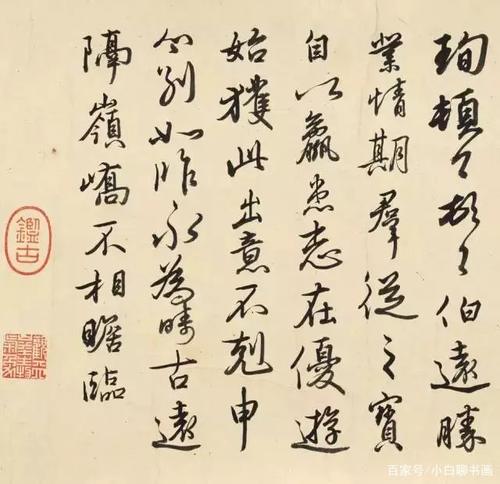 珣頓〻首〻伯遠勝
業情期羣從之寶
自以羸患志在優遊
始獲此出意不剋申
分別如昨永為疇古遠
隔嶺嶠不相瞻臨
鑑古
百家号/小白聊书画